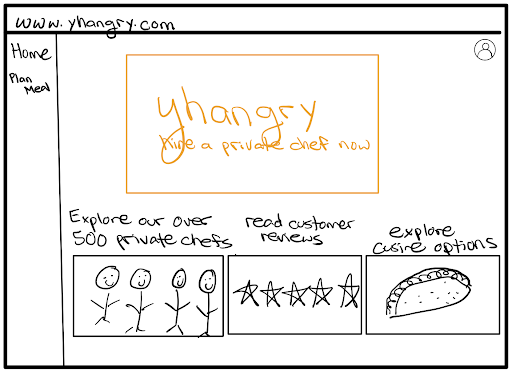 www.yhangry.com
Home
Plan
Meal
yhangry
hire a private chef now
Explore our over
500 private chefs
read customer
reviews
explore
cusire options